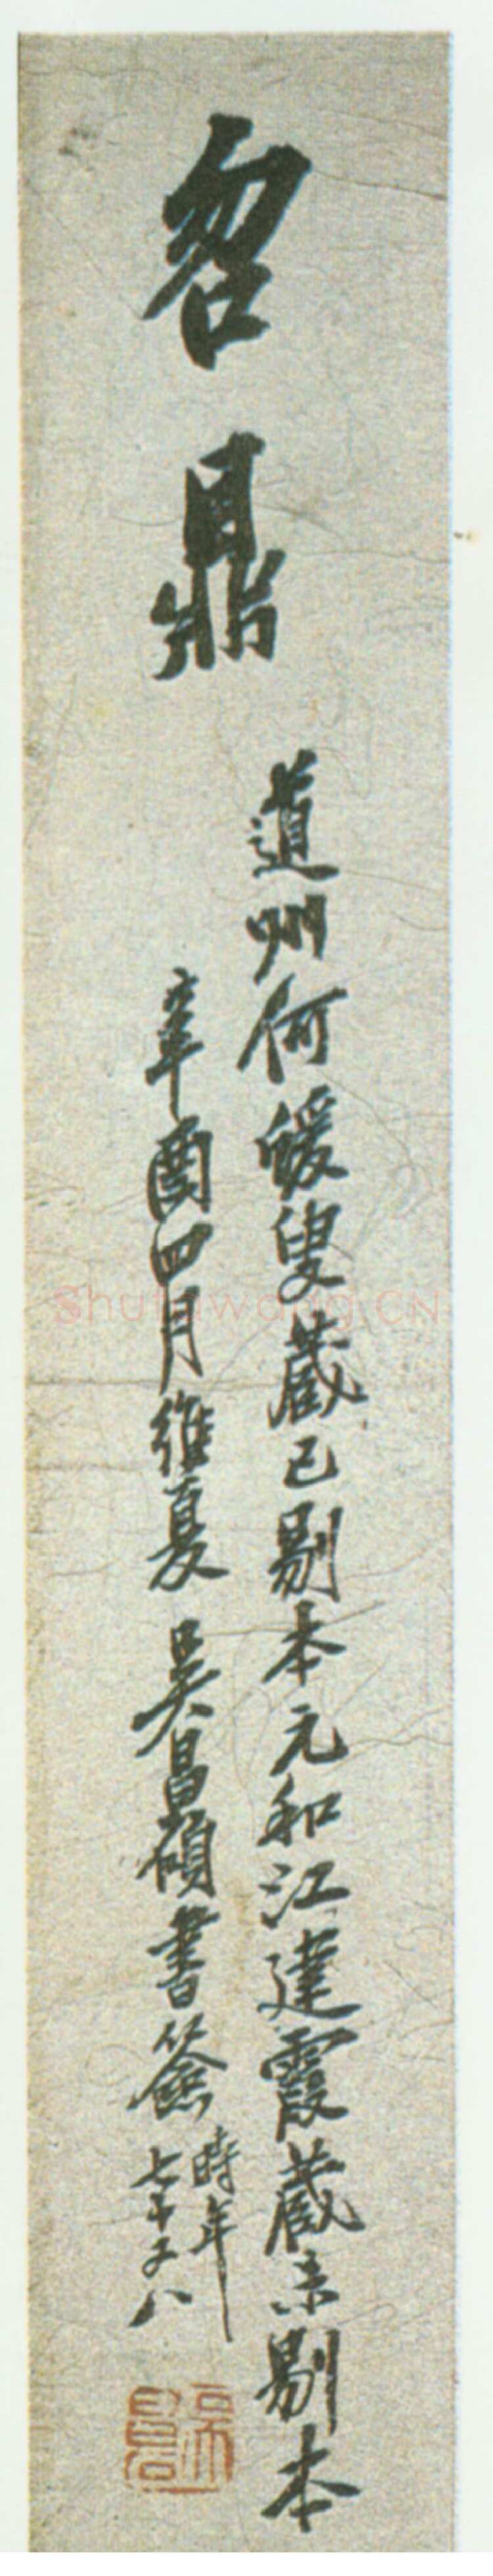 曶鼎
道州何蝯叟藏已剔本元和江建霞藏未剔本
辛酉四月維夏 吳昌碩書簽
時年
七十又八
Shufawang.CN